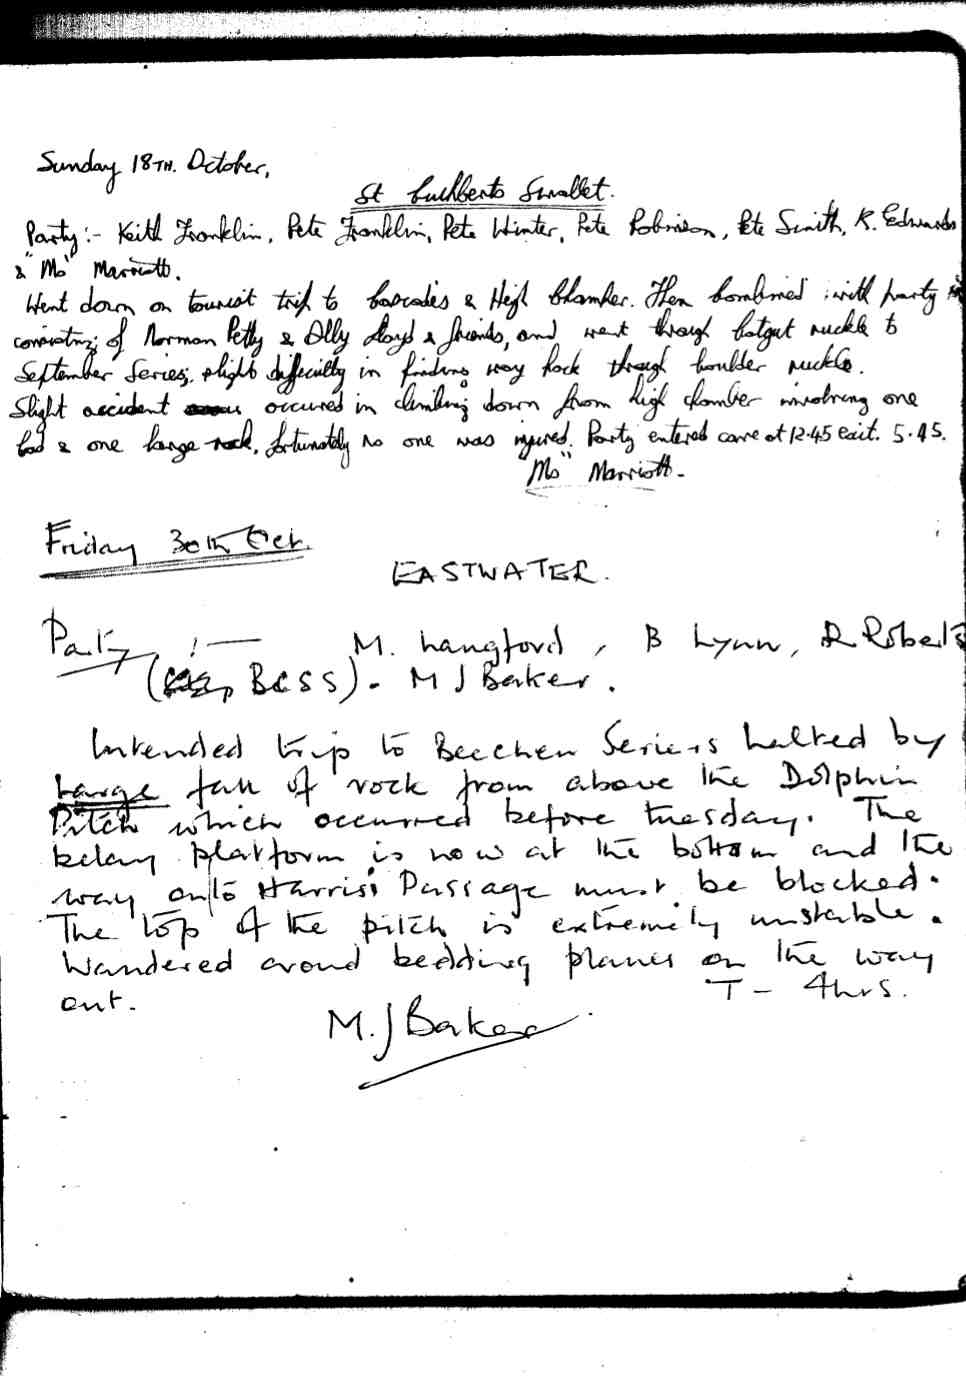 Sunday 18TH. October,
St Cuthberts Swallet.
Party:- Keith Franklin, Pete Franklin, Pete Winter, Pete Robinson, Pete Smith, R. Edwards
& "Mo" Marriott.
Went down on tourist trip to Cascades & High Chamber. Then combined with party
consisting of Norman Petty & Olly Lloyd & friends, and went through Catgut ruckle to
September Series, slight difficulty in finding way back through boulder ruckle.
Slight accident occured in climbing down from high chamber involving one
lad & one large rock, fortunately no one was injured. Party entered cave at 12.45 exit. 5.45.
"Mo" Marriott.
Friday 30th Oct.
EASTWATER.
Party :— M. Langford, B Lynn, R Roberts
(BCSS). M J Baker.
Intended trip to Beechen Series halted by
Large fall of rock from above the Dolphin
Pitch which occurred before tuesday. The
belay platform is now at the bottom and the
way onto Harris's Passage must be blocked.
The top of the pitch is extremely unstable.
Wandered around bedding planes on the way
out. T - 4hrs.
M. J Baker